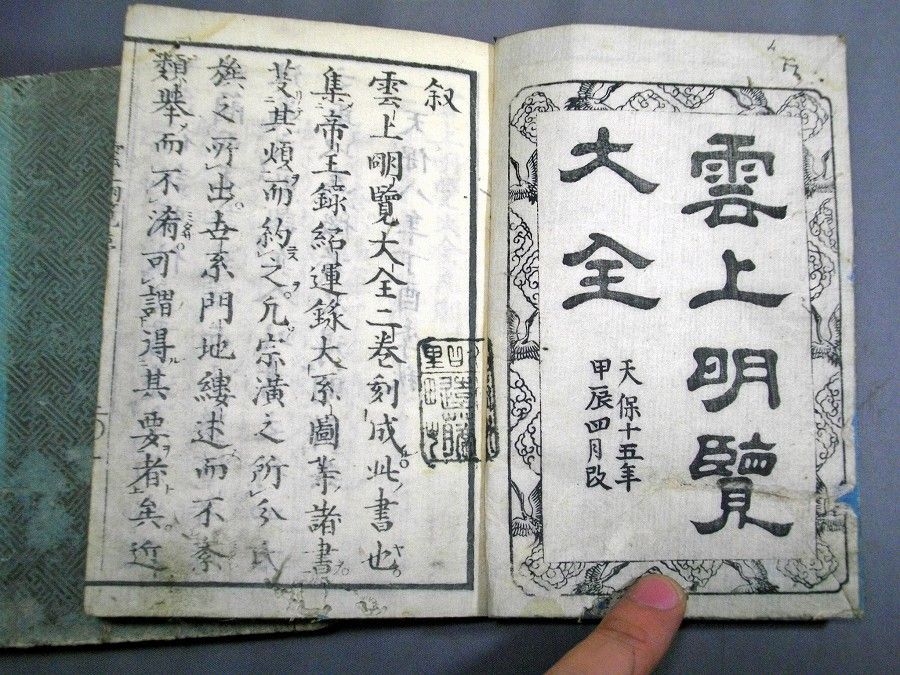 雲上明覽
大全
天保十五年
甲辰四月改
叙
雲上明覽大全二巻刻成此書也
集帝王録紹運録大系圖等諸書
芟其煩而約之凡宗潢之所分氏
族之所出世系門地縷述而不紊
類舉而不淆可謂得其要者矣近